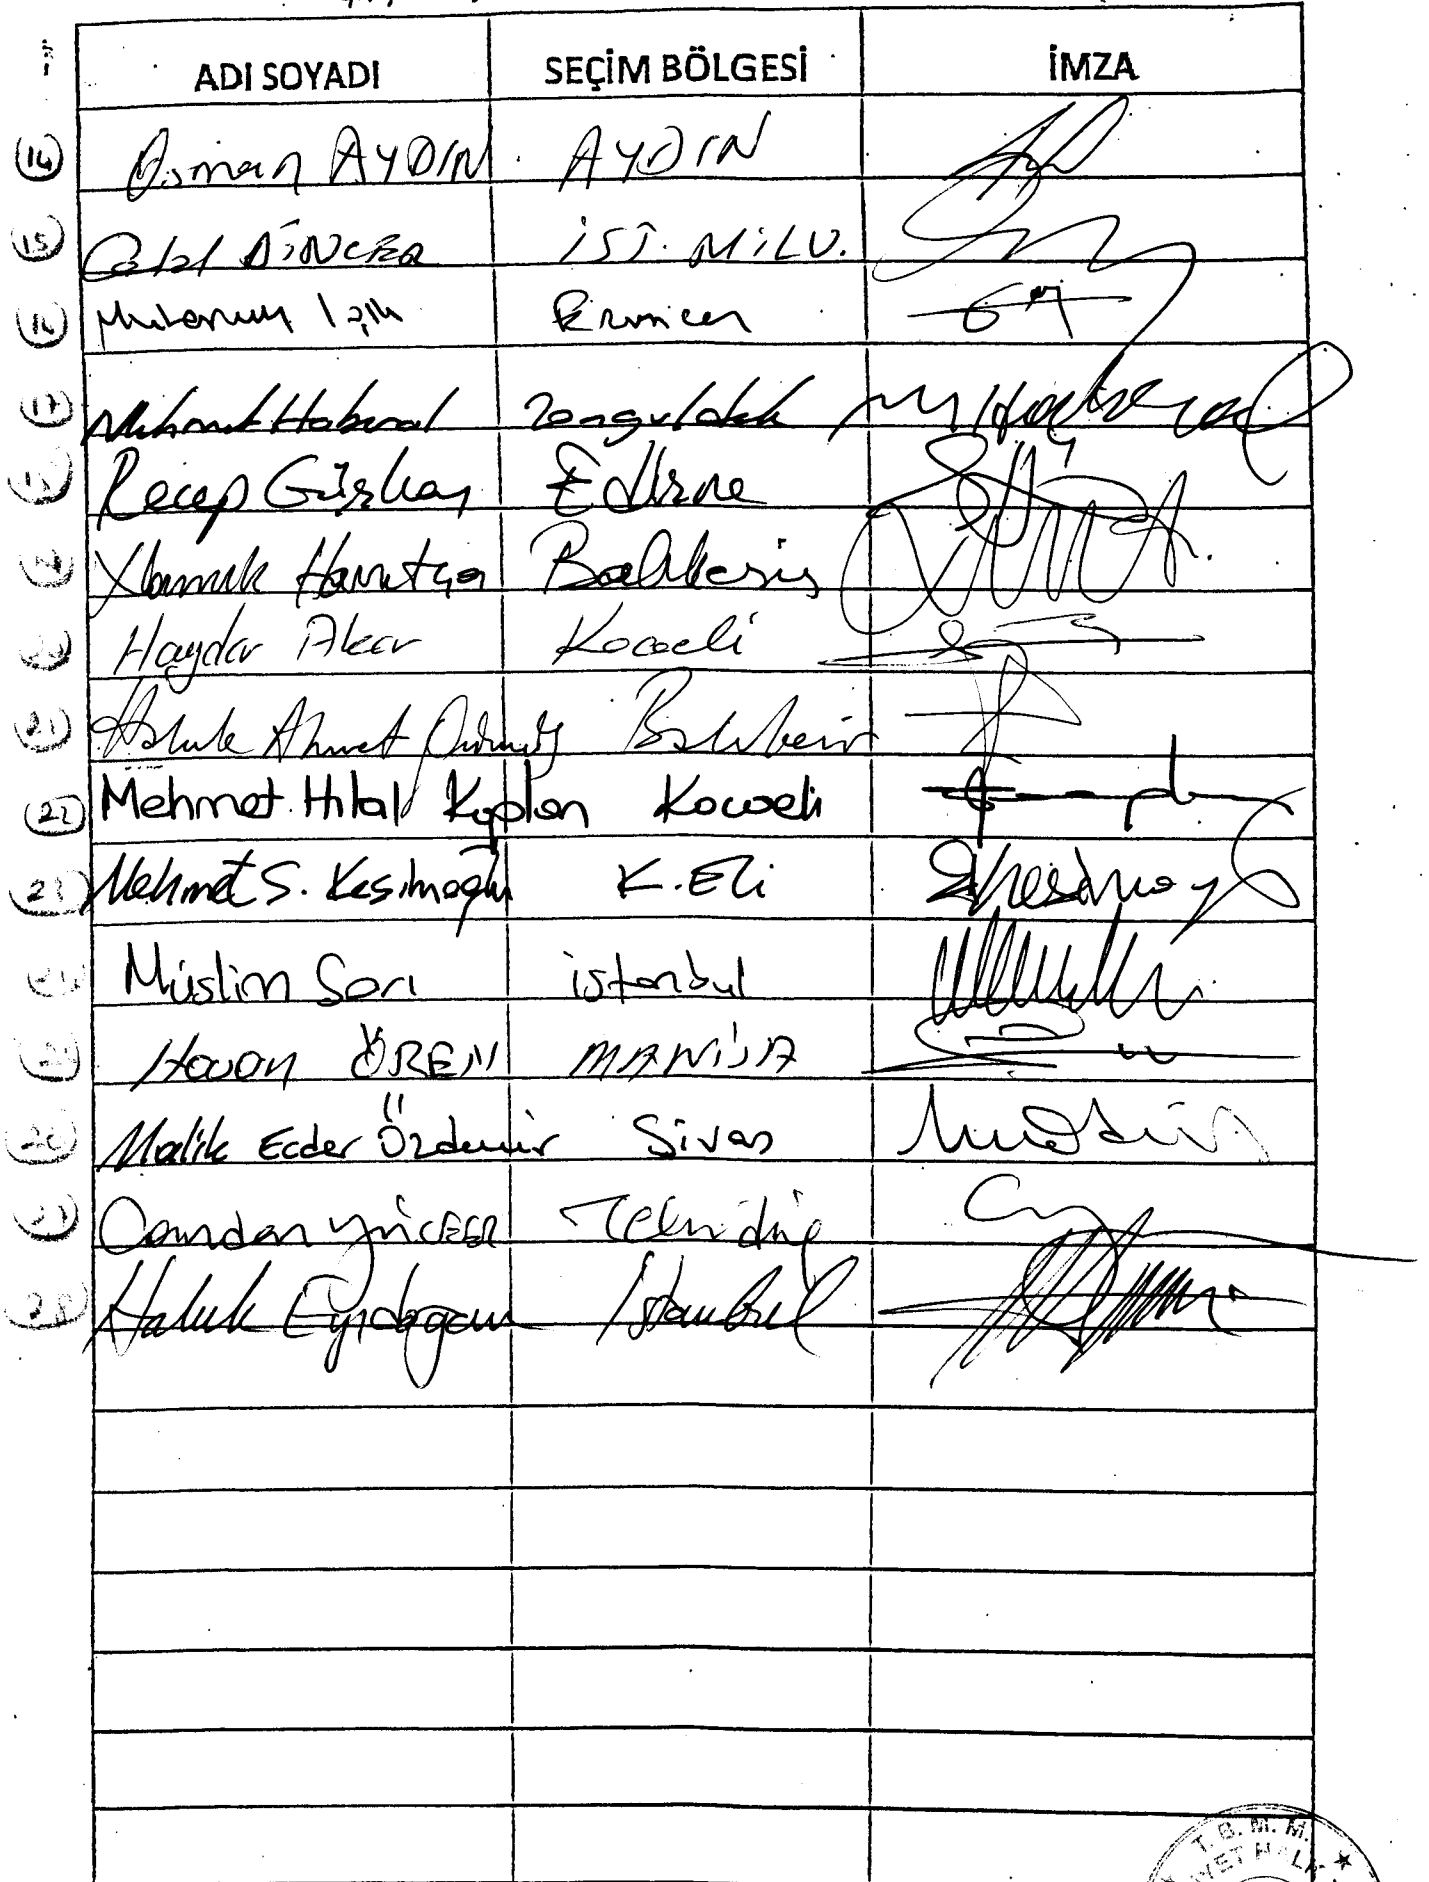 ADI SOYADI SEÇİM BÖLGESİ İMZA
14 Osman AYDIN AYDIN
15 Celal DİNÇER İST. MİLV.
16 Muharrem Işık Erzincan
17 Mehmet Haberal Zonguldak
Recep Gürkan Edirne
Namık Havutça Balıkesir
Haydar Akar Kocaeli
21 Haluk Ahmet Balıkesir
22 Mehmet Hilal Kaplan Kocaeli
23 Mehmet S. Kesimoğlu K.Eli
Müslim Sarı istanbul
ÖREN MANİSA
26 Malik Ecder Özdemir Sivas
27 Candan YÜCEER Tekirdağ
28 Haluk Eyidoğan İstanbul
T. B. M. M.